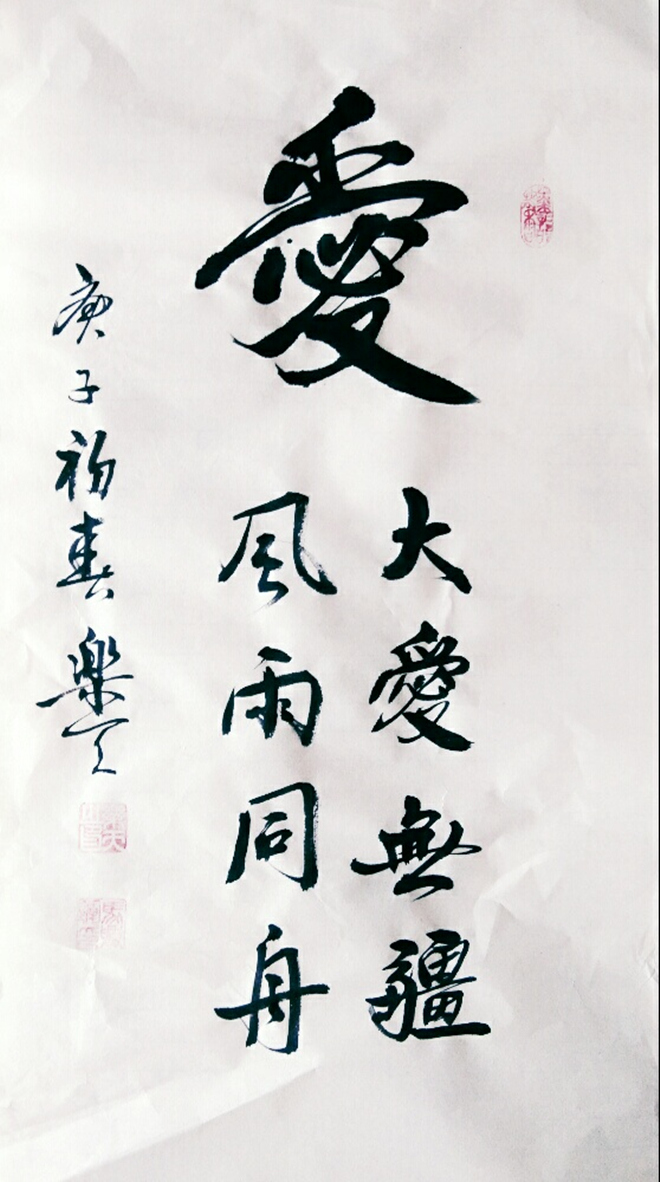 愛
大愛無疆
風雨同舟
庚子初春樂天